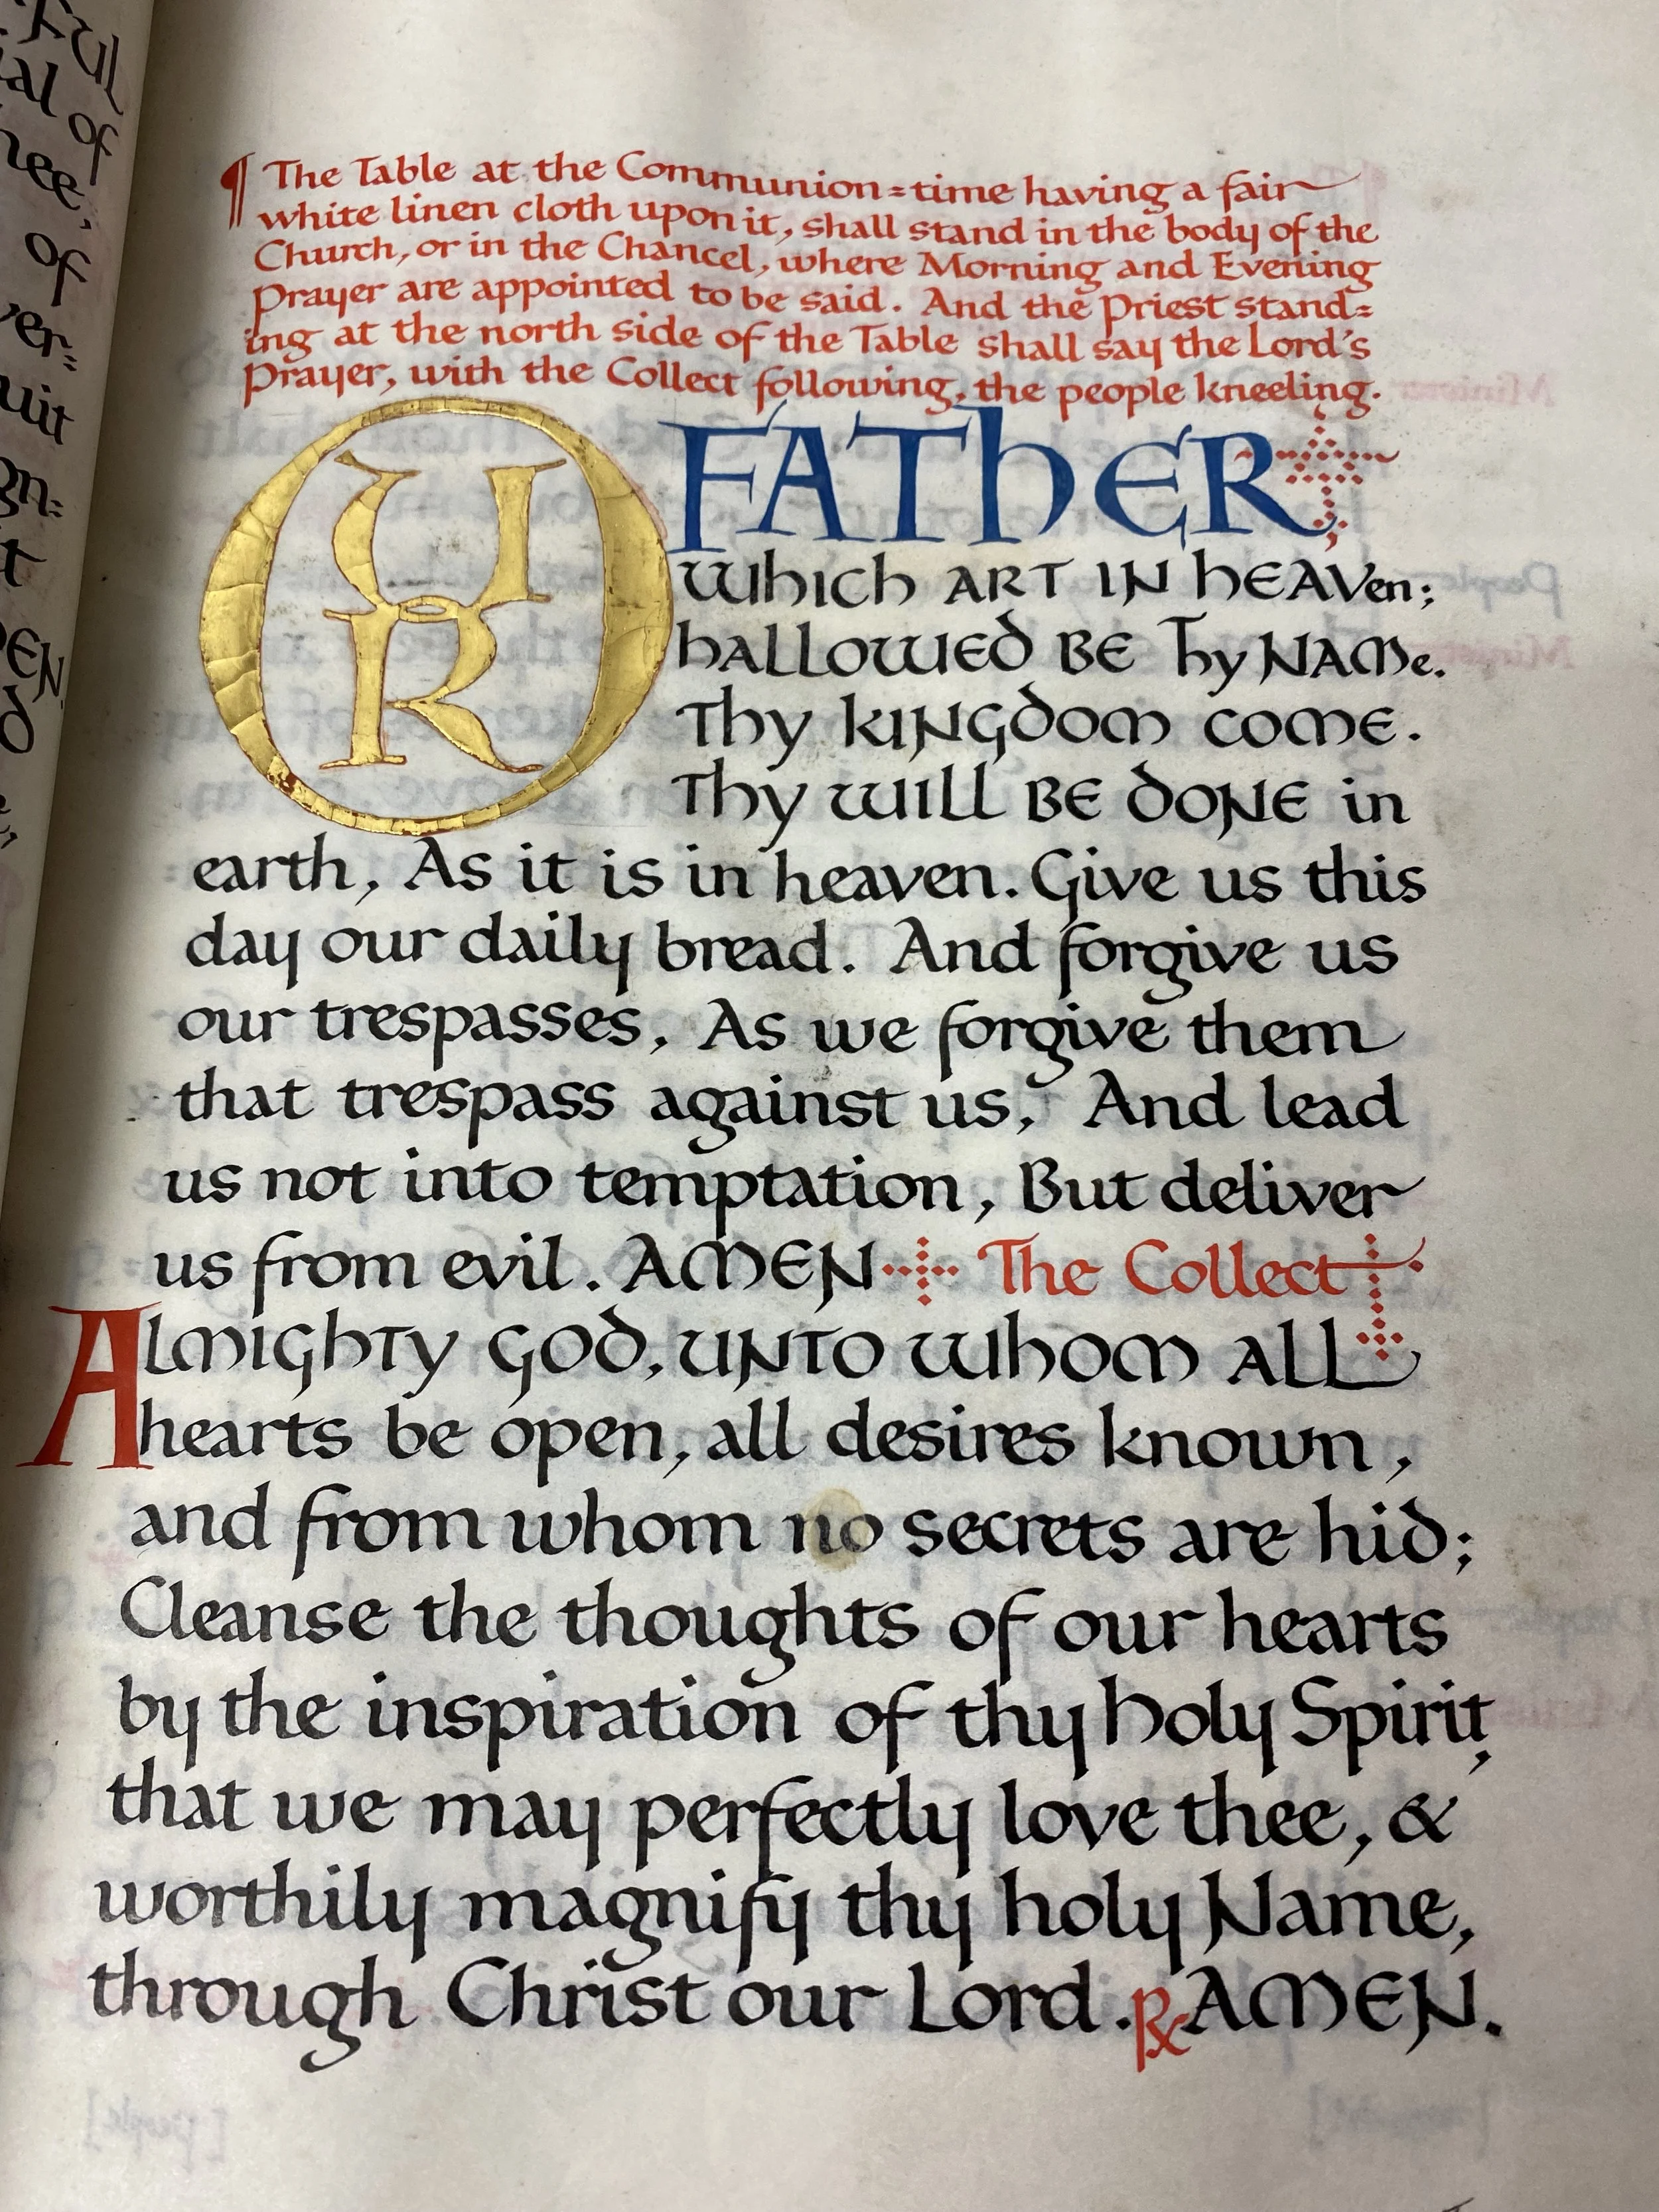 ¶ The Table at the Communion=time having a fair
white linen cloth upon it, shall stand in the body of the
Church, or in the Chancel, where Morning and Evening
Prayer are appointed to be said. And the Priest stand=
ing at the north side of the Table shall say the Lord's
Prayer, with the Collect following, the people kneeling.
OUR FATHER,
which ART IN hEAVen;
hALLOWED BE Thy NAMe.
Thy KINGDOM COME.
Thy WILL BE DONE in
earth, As it is in heaven. Give us this
day our daily bread. And forgive us
our trespasses, As we forgive them
that trespass against us, And lead
us not into temptation, But deliver
us from evil. AMEN The Collect
ALMIGhTy GOD, UNTO WhOM ALL
hearts be open, all desires known,
and from whom no secrets are hid;
Cleanse the thoughts of our hearts
by the inspiration of thy holy Spirit,
that we may perfectly love thee, &
worthily magnify thy holy Name,
through Christ our Lord. ℟ AMEN.